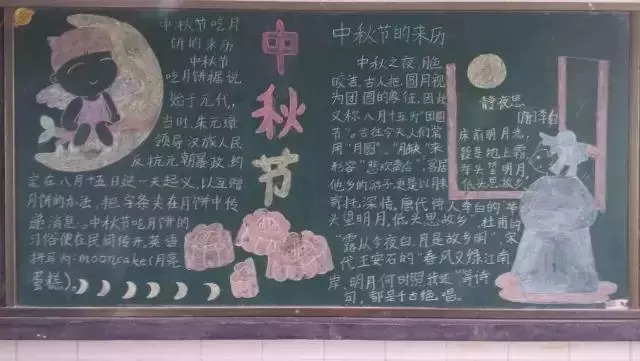 中秋节吃月
饼的来历
中秋节
吃月饼据说
始于元代,
当时,朱元璋
领导汉族人民
反抗元朝暴政,约
定在八月十五日这一天起义,以互赠
月饼的办法,把字条夹在月饼中传
递消息。中秋节吃月饼的
习俗便在民间传开,英语
拼写为:mooncake(月亮
蛋糕)。
中秋节
中秋节的来历
中秋之夜,月色
皎洁,古人把圆月视
为团圆的象征,因此
又称八月十五为“团圆
节”。古往今天人们常
用“月圆”、“月缺”来
形容“悲欢离合”,客居
他乡的游子更是以月来
寄托深情。唐代诗人李白的“举
头望明月,低头思故乡”,杜甫的
“露从今夜白,月是故乡明”,宋
代王安石的“春风又绿江南
岸,明月何时照我还”等诗
句,都是千古绝唱。
静夜思
[唐]李白
床前明月光,
疑是地上霜。
举头望明月,
低头思故乡。